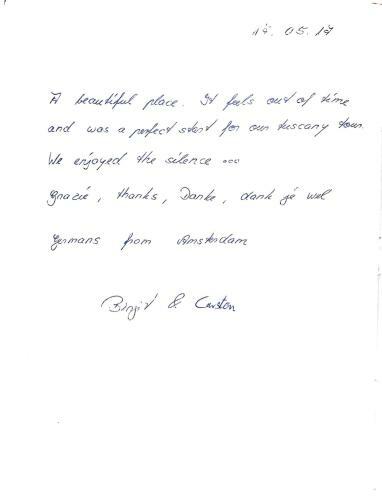 17. 05. 17
A beautiful place. It feels out of time
and was a perfect start for our tuscany tour.
We enjoyed the silence ...
Grazie, thanks, Danke, dank je wel
Germans from Amsterdam
Birgit & Carsten